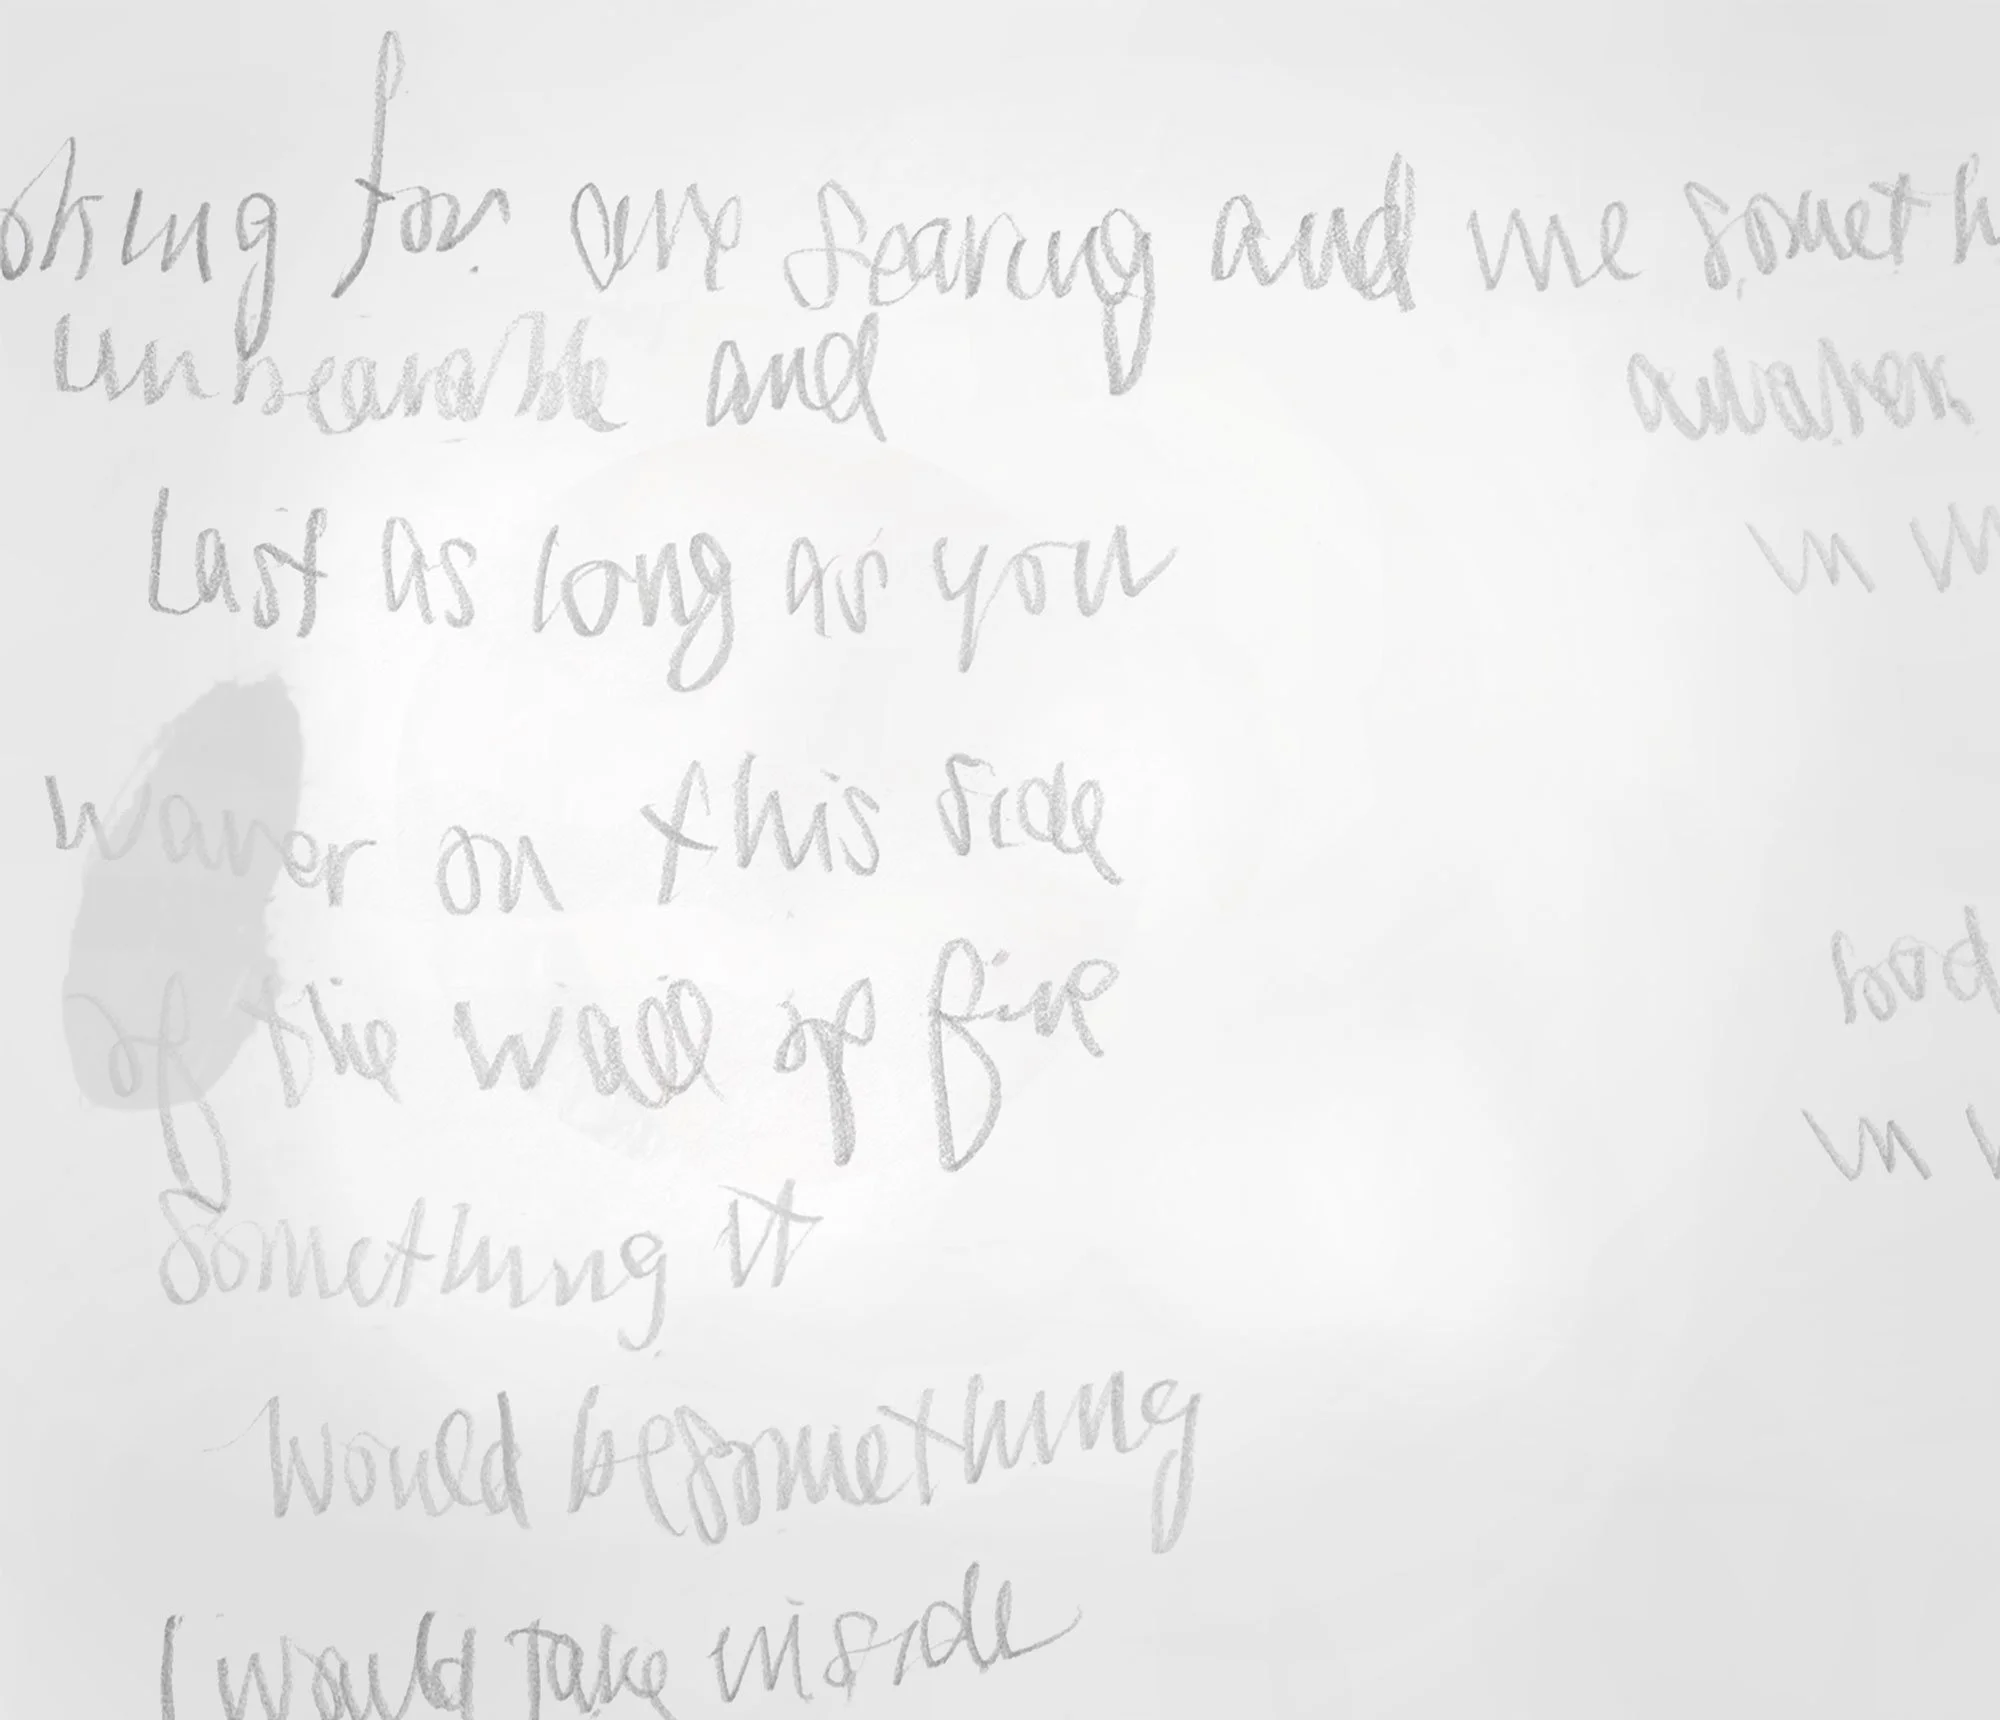 oking for one searing and me someth
unbearable and awaken
Last as long as you in
waver on this side
of the wall of fire
bod
Something it in
would be something
I would take inside